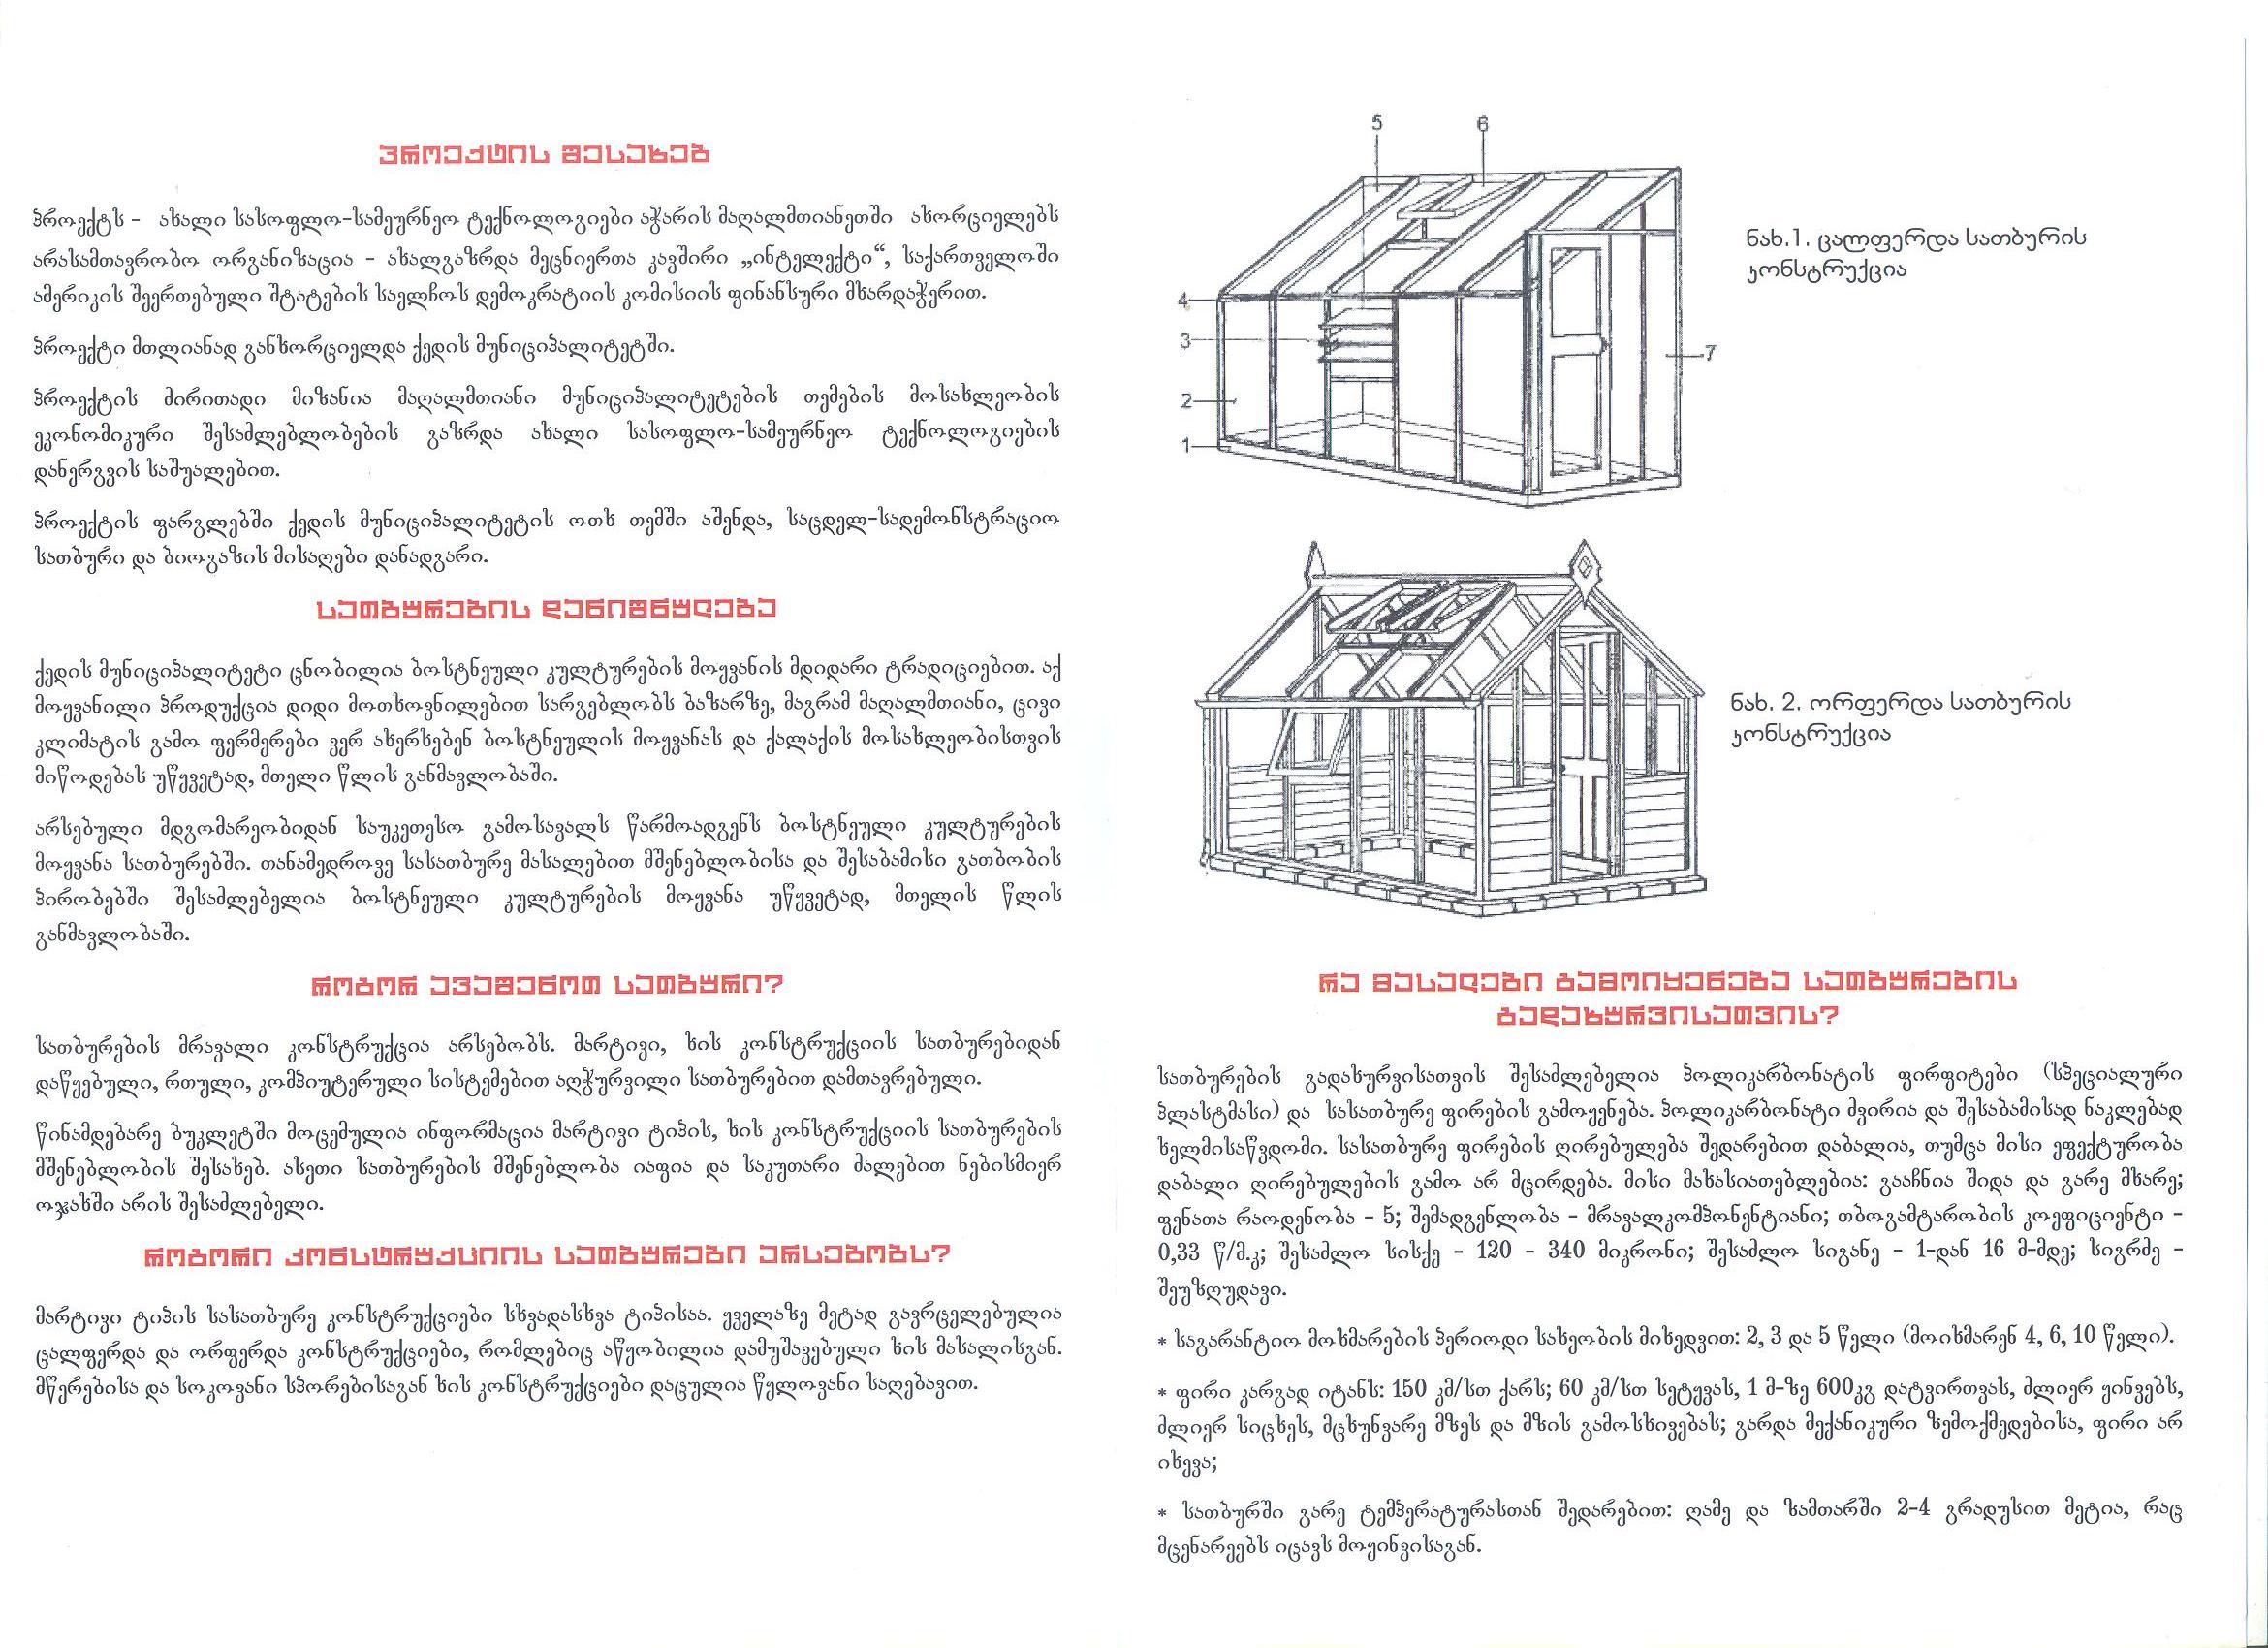 პროექტის შესახებ
პროექტს - ახალი სასოფლო-სამეურნეო ტექნოლოგიები აჭარის მაღალმთიანეთში ახორციელებს
არასამთავრობო ორგანიზაცია - ახალგაზრდა მეცნიერთა კავშირი „ინტელექტი“, საქართველოში
ამერიკის შეერთებული შტატების საელჩოს დემოკრატიის კომისიის ფინანსური მხარდაჭერით.
პროექტი მთლიანად განხორციელდა ქედის მუნიციპალიტეტში.
პროექტის ძირითადი მიზანია მაღალმთიანი მუნიციპალიტეტების თემების მოსახლეობის
ეკონომიკური შესაძლებლობების გაზრდა ახალი სასოფლო-სამეურნეო ტექნოლოგიების
დანერგვის საშუალებით.
პროექტის ფარგლებში ქედის მუნიციპალიტეტის ოთხ თემში აშენდა, საცდელ-სადემონსტრაციო
სათბური და ბიოგაზის მისაღები დანადგარი.
სათბურების დანიშნულება
ქედის მუნიციპალიტეტი ცნობილია ბოსტნეული კულტურების მოყვანის მდიდარი ტრადიციებით. აქ
მოყვანილი პროდუქცია დიდი მოთხოვნილებით სარგებლობს ბაზარზე, მაგრამ მაღალმთიანი, ცივი
კლიმატის გამო ფერმერები ვერ ახერხებენ ბოსტნეულის მოყვანას და ქალაქის მოსახლეობისთვის
მიწოდებას უწყვეტად, მთელი წლის განმავლობაში.
არსებული მდგომარეობიდან საუკეთესო გამოსავალს წარმოადგენს ბოსტნეული კულტურების
მოყვანა სათბურებში. თანამედროვე სასათბურე მასალებით მშენებლობისა და შესაბამისი გათბობის
პირობებში შესაძლებელია ბოსტნეული კულტურების მოყვანა უწყვეტად, მთელის წლის
განმავლობაში.
როგორ ავაშენოთ სათბური?
სათბურების მრავალი კონსტრუქცია არსებობს. მარტივი, ხის კონსტრუქციის სათბურებიდან
დაწყებული, რთული, კომპიუტერული სისტემებით აღჭურვილი სათბურებით დამთავრებული.
წინამდებარე ბუკლეტში მოცემულია ინფორმაცია მარტივი ტიპის, ხის კონსტრუქციის სათბურების
მშენებლობის შესახებ. ასეთი სათბურების მშენებლობა იაფია და საკუთარი ძალებით ნებისმიერ
ოჯახში არის შესაძლებელი.
როგორი კონსტრუქციის სათბურები არსებობს?
მარტივი ტიპის სასათბურე კონსტრუქციები სხვადასხვა ტიპისაა. ყველაზე მეტად გავრცელებულია
ცალფერდა და ორფერდა კონსტრუქციები, რომლებიც აწყობილია დამუშავებული ხის მასალისგან.
მწერებისა და სოკოვანი სპორებისაგან ხის კონსტრუქციები დაცულია წყლოვანი საღებავით.
5 6
4
3
2
1
7
ნახ.1. ცალფერდა სათბურის
კონსტრუქცია
ნახ. 2. ორფერდა სათბურის
კონსტრუქცია
რა მასალები გამოიყენება სათბურების
გადახურვისათვის?
სათბურების გადახურვისათვის შესაძლებელია პოლიკარბონატის ფირფიტები (სპეციალური
პლასტმასი) და სასათბურე ფირების გამოყენება. პოლიკარბონატი ძვირია და შესაბამისად ნაკლებად
ხელმისაწვდომი. სასათბურე ფირების ღირებულება შედარებით დაბალია, თუმცა მისი ეფექტურობა
დაბალი ღირებულების გამო არ მცირდება. მისი მახასიათებლებია: გააჩნია შიდა და გარე მხარე;
ფენათა რაოდენობა - 5; შემადგენლობა - მრავალკომპონენტიანი; თბოგამტარობის კოეფიციენტი -
0,33 წ/მ.კ; შესაძლო სისქე - 120 - 340 მიკრონი; შესაძლო სიგანე - 1-დან 16 მ-მდე; სიგრძე -
შეუზღუდავი.
* საგარანტიო მოხმარების პერიოდი სახეობის მიხედვით: 2, 3 და 5 წელი (მოიხმარენ 4, 6, 10 წელი).
* ფირი კარგად იტანს: 150 კმ/სთ ქარს; 60 კმ/სთ სეტყვას, 1 მ-ზე 600კგ დატვირთვას, ძლიერ ყინვებს,
ძლიერ სიცხეს, მცხუნვარე მზეს და მზის გამოსხივებას; გარდა მექანიკური ზემოქმედებისა, ფირი არ
იხევა;
* სათბურში გარე ტემპერატურასთან შედარებით: ღამე და ზამთარში 2-4 გრადუსით მეტია, რაც
მცენარეებს იცავს მოყინვისაგან.